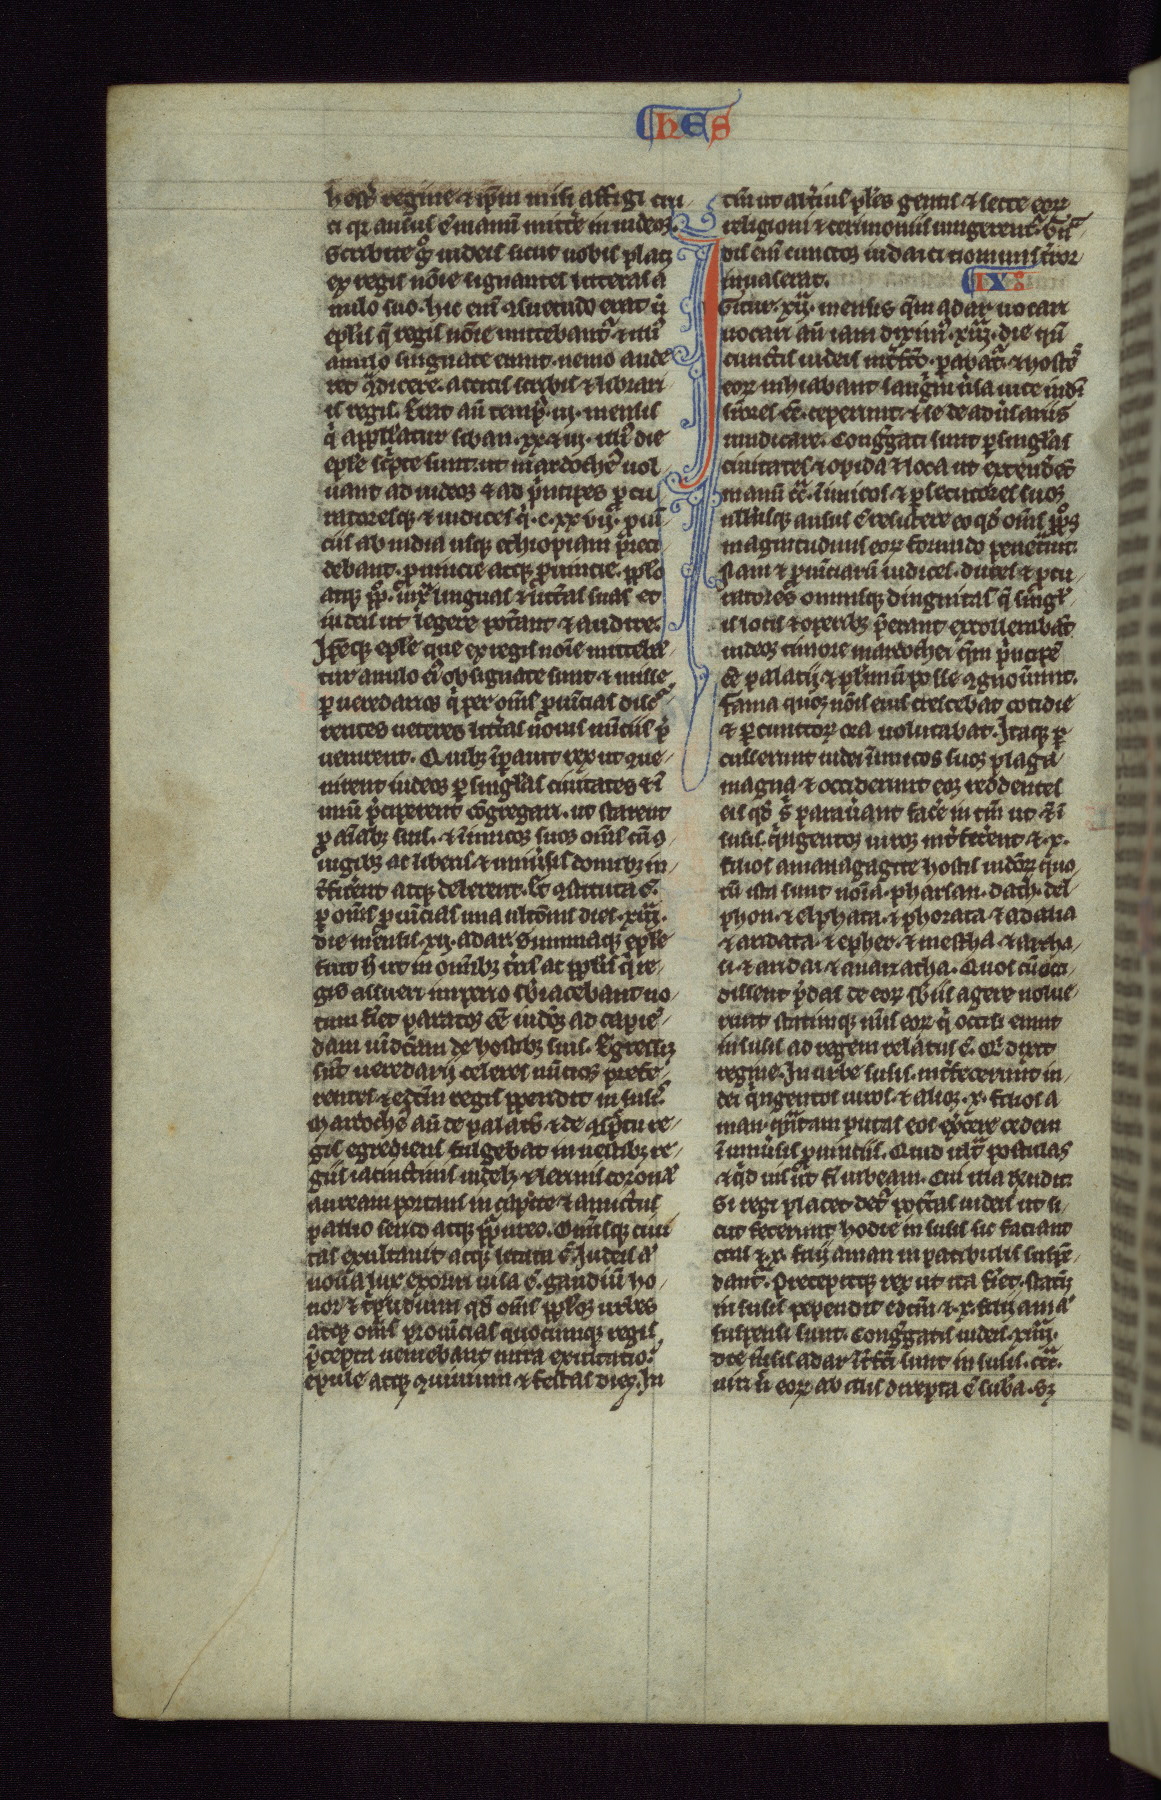 HES
hester regine ⁊ ip̄m iussi affigi cru
ci qr ausus ē manū mitt̄e in iudeos.
Scribite ḡ iudeis sicut uobis placꝫ
ex regis nōie signantes litteras a
nulo suo. hec enī ꝯsuetudo erat ut
eplis q̄ regis nōie mittebant̄ ⁊ illi᷒
anulo singnate erant. nemo aude
ret ꝯ̄dicere. accitis scribis ⁊ librari
is regis. Erat aū temp᷒ .iij. mensis
q̄ appellatur siban .xx. ⁊ .iij. illi᷒ die
eple sc̄pte sunt. ut mardoche᷒ uol
uant ad iudeos ⁊ ad p̄ncipes ꝓcu
ratoresqꝫ ⁊ iudices q̄ .c.xx.vij. ꝓuī
ciis ab india usqꝫ ethiopiam p̄side
debant. ꝓuincie atqꝫ ꝓuincie. pplo
atqꝫ pplo iuxᵃ linguas ⁊ litt̄as suas et
iudeis ut legere pot̄ant ⁊ audire.
Ipseqꝫ eple que ex regis nōie mitteba
tur anulo ei᷒ obsignate sunt ⁊ misse
ꝑ ueredarios q̄ per om̄s ꝓuīcias discur
rentes ueteres litt̄as nouis nūciis p̄
uenirent. Quibꝫ īꝑauit rex ut que
nirent iudeos ꝑ singl̄as ciuitates ⁊ ī
unū p̄ciperent cōgregari. ut starent
ꝓ aīabꝫ suis. ⁊ īimicos suos om̄s cū ꝯ
iugibꝫ ac liberis ⁊ uniu̅sis domibꝫ in
t̄fic̄ent atqꝫ delerent. Et ꝯstituta ē
ꝑ om̄s ꝓuīcias una ultōnis dies .xiij.
die mēsis .xij. adar. Summaqꝫ eple
fuit h̄ ut in omībꝫ t̄ris ac pplis q̄ re
gis assueri imperio sb̄iacebant no
tum fiet paratos eē iudeos ad capie
dam uīdc̄am de hostibꝫ suis. Egressiqꝫ
sūt ueredarij celeres nūcios prefe
rentes ⁊ edc̄m regis ppendit in susis.
Mardoche᷒ aū de palatō ⁊ de ꝯsp̄ctu re
gis egrediens fulgebat in uestibꝫ re
giis iacinctinis uidelꝫ ⁊ aeriis coronā
auream portans in capite ⁊ amictus
pallio serico atqꝫ ppureo. Omīsqꝫ ciui
tas exultauit atqꝫ letata ē. Iudeis aū
noua lux exoriri uisa ē. gaudiū ho
nor ⁊ tp̄udium apud om̄s pplos urbes
atqꝫ om̄s prouīcias quocumqꝫ regis
p̄cepta ueniebant mira exultatio.
epule atqꝫ ꝯuiuium ⁊ festus dies. In
tm̄ ut alt̄ius pleb̄s gentis ⁊ secte eorꝝ
religioni ⁊ cerimoniis iungerent̄. Gͣn
dis enī cunctos iudaici nominis t̄ror
inuaserat.
IX
Igitur .xij. mensis q̄m adar uocari
uocari aū iam dixim᷒ .xiij. die qn̄
cunctis iudeis int̄fectō ꝑabat̄ ⁊ hostes
eorꝝ inhiabant sanguīi u̅sa uice iudei
suꝑiores eē ceperunt ⁊ se de adu̅sariis
uindicare. Congͣgati sunt ꝑ singl̄as
ciuitates ⁊ opida ⁊ loca ut extenderet
manū ctͣ īimicos ⁊ ꝑsecutores suos
nullusqꝫ ausus ē resist̄e eo qd̄ om̄s ppl̄os
magnitudinis eorꝝ formido penet̄rat.
Nam ⁊ ꝓuīciarū iudices. duces ⁊ ꝓcu
ratores omnisqꝫ dingnitas q̄ singl̄
is locis ⁊ operibꝫ p̄erant extollebant
iudeos timore mardochei q̄m p̄ncipē
eē palatij ⁊ pl̄imū posse ꝯgnou̅ant.
fama quoqꝫ nōis eius crescebat cotidie
⁊ ꝑ cunctorꝝ ora uolitabat. Itaqꝫ ꝑ
cusserunt iudei īimicos suos plaga
magna ⁊ occiderunt eos reddentes
eis qd̄ s̄ parau̅ant fac̄e in tm̄ ut ⁊ ī
susis q̄ngentos uiros int̄fic̄ent ⁊ .x.
filios aman agagite hostis iudeorꝝ quo
rū ista sunt noīa. pharsan. dath. del
phon. ⁊ esphata. ⁊ phorata ⁊ adalia
⁊ aridata ⁊ ephes. ⁊ mestha ⁊ arsa
i. ⁊ aridai ⁊ auaizatha. Quos cū occi
dissent p̄das de eorꝝ sb̄iis agere nolue
runt statimqꝫ nūs eorꝝ q̄ occisi erant
in susis ad regem relatus ē. Qi dixit
regine. In urbe susis int̄fecerunt iu
dei q̄ngentos uiros. ⁊ alios .x. filios a
man. quātam putas eos exerc̄e cedem
ī uniu̅sis ꝓuinciis. Quid ultͣ postulas
⁊ qͥd uis ut fi iubeam. Cui illa rn̄dit.
Si regi placet det̄ potestas iudeis ut si
cut fecerunt hodie in susis sic faciant
cras ⁊ .x. filij aman in patibulis suspē
dant̄. Precepitqꝫ rex ut ita fiet. Statīqꝫ
in susis pependit edc̄m ⁊ .x. filij amā
suspensi sunt. Congͣgatis iudeis .xiiij.
die mēsis adar īt̄fc̄i sunt in susis .ccc.
uiri n̄ eorꝝ ab illis direpta ē sub̄a. Sꝫ